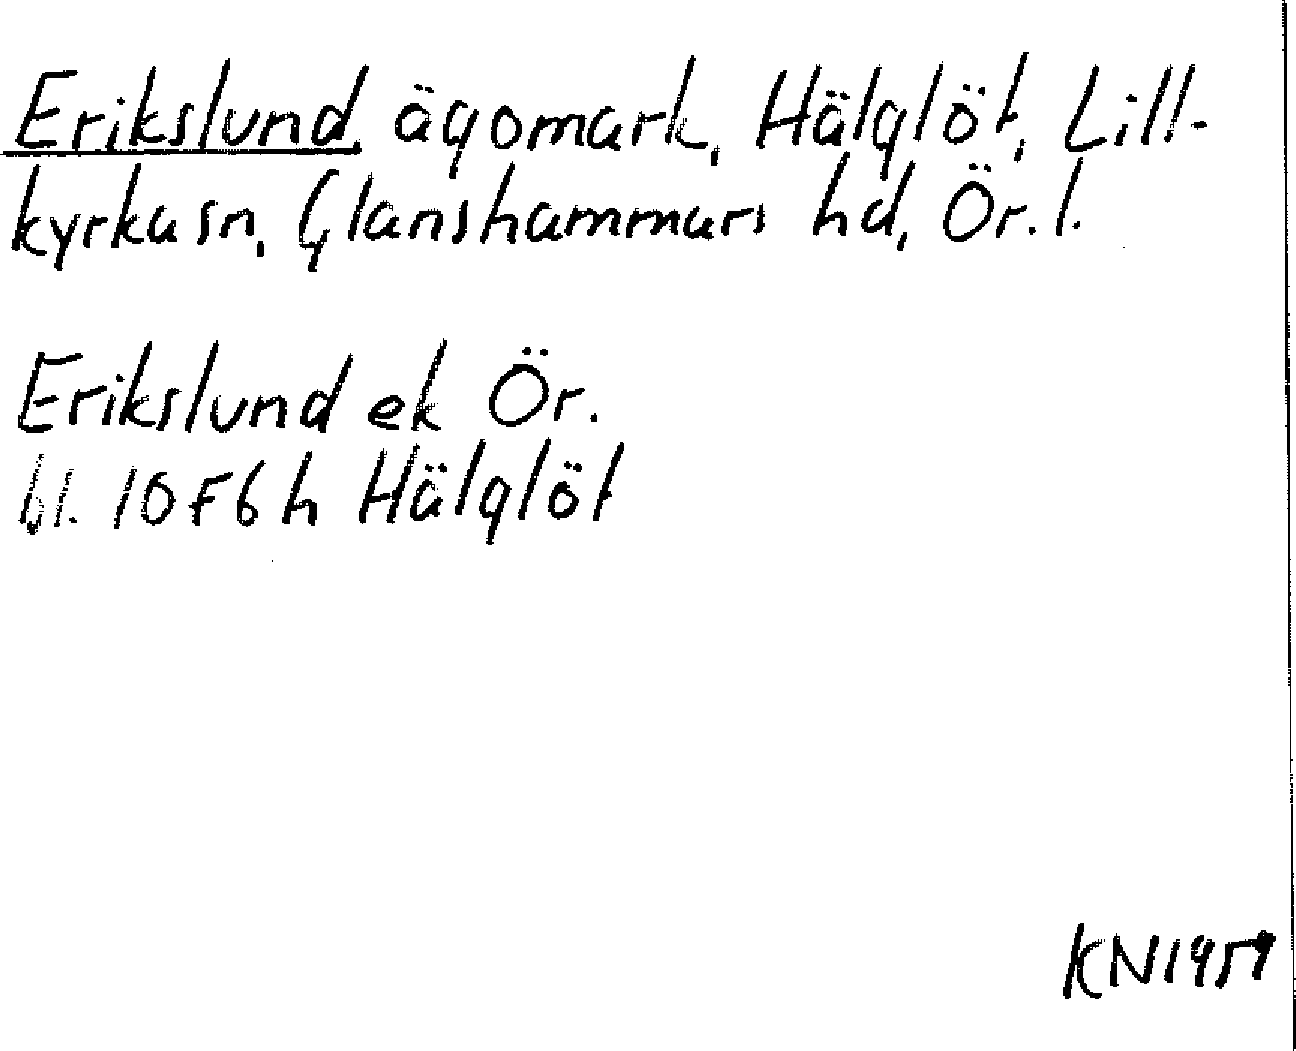 Erikslund, ägomark, Hälglöt, Lill-
kyrka sn, Glanshammars hd, Ör. l.
Erikslund ek Ör.
bl. 10F6h Hälglöt
KN 1959